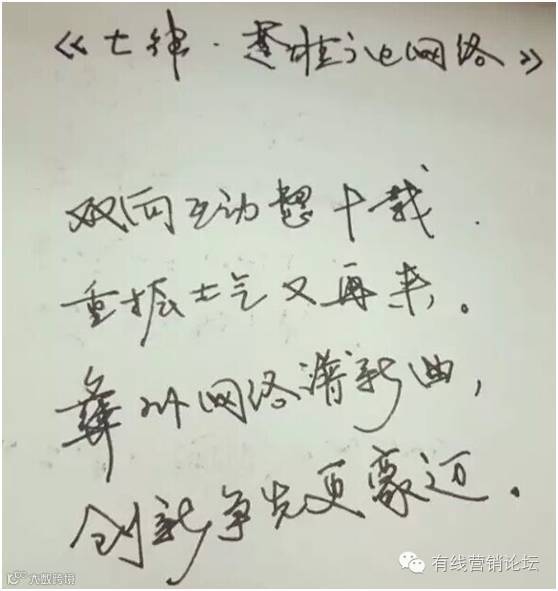 《七律·楚雄网络》
双向互动十载
重振士气又再来。
彝州网络谱新曲，
创新争先更豪迈.
有线营销论坛
大数跨境